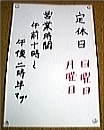 定休日
日曜日
月曜日
営業時間
午前十時〜
午後二時半まで